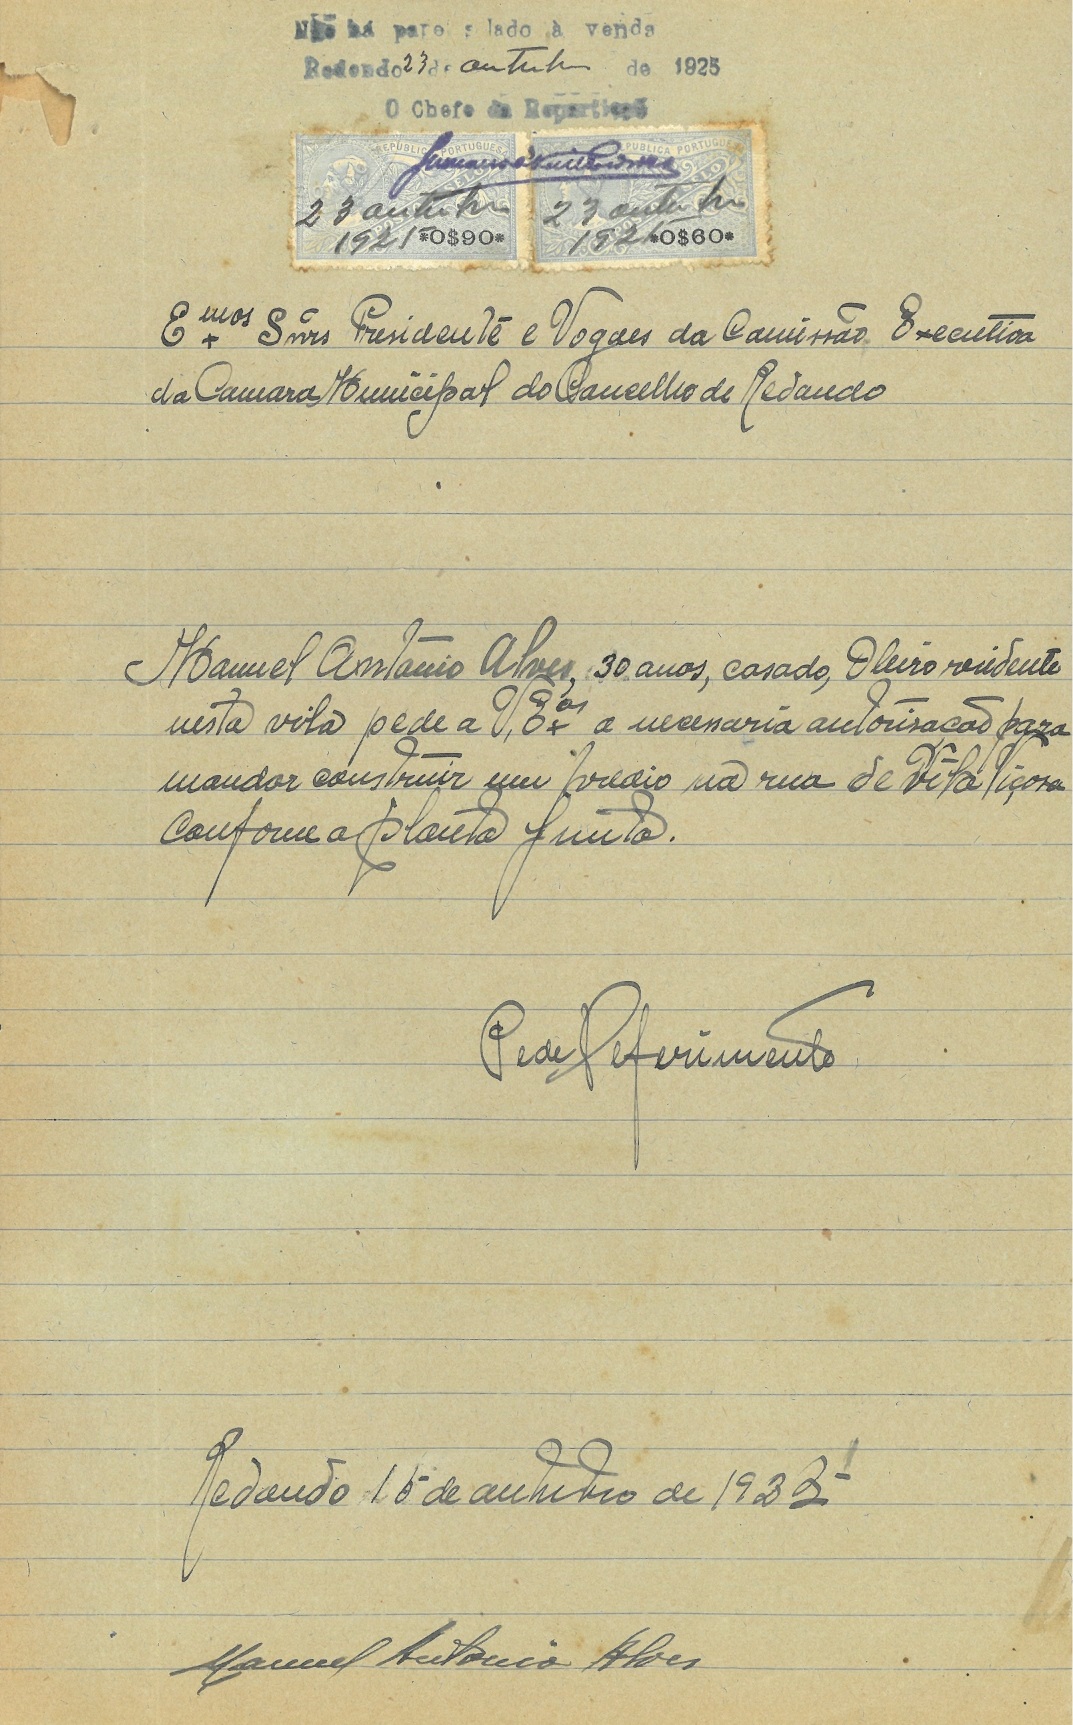 Não há papel selado à venda
Redondo 23 de outubro de 1925
O Chefe da Repartição
REPUBLICA PORTUGUESA
REPUBLICA PORTUGUESA
SELO
23 outubro
23 outubro
1925 *0$90*
1925 *0$60*
Exmos Snrs Presidente e Vogaes da Comissão Executiva
da Camara Municipal do Concelho de Redondo
Manuel António Alves, 30 anos, casado, Oleiro residente
nesta vila pede a V. Exas a necessaria autorisação para
mandar construir um predio na rua de Vila Viçosa
conforme a planta junta.
Pede Deferimento
Redondo 15 de outubro de 1925
Manuel Antonio Alves